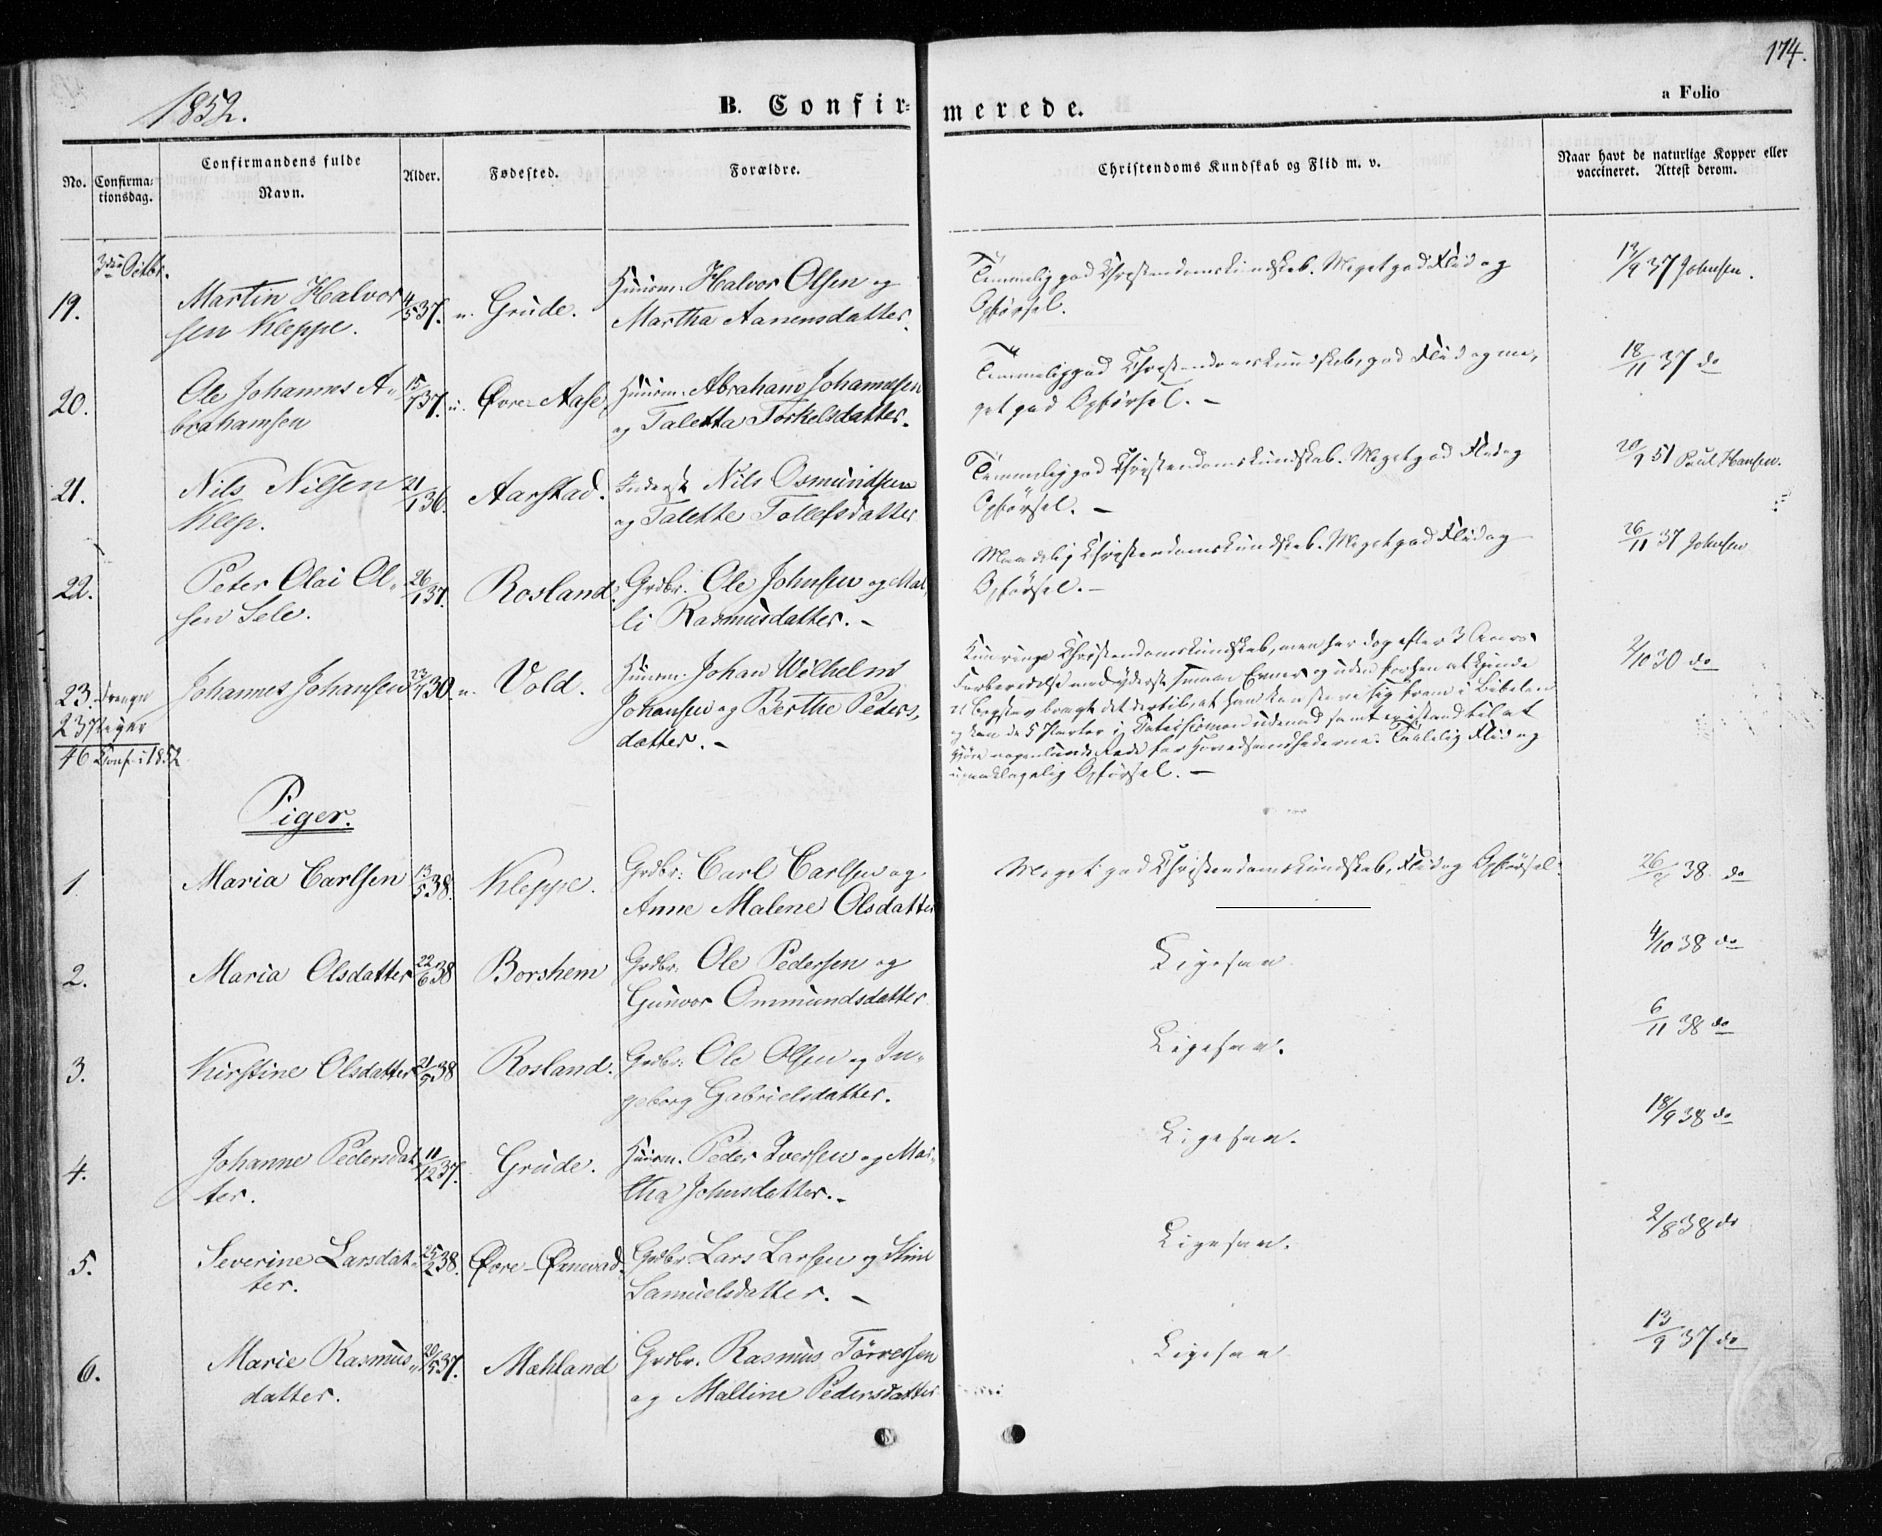 174.
1852.
B. Confir=
merede.
a Folio
No.
Confirma=
tionsdag.
Confirmandens fulde
Navn.
Alder.
Fødested.
Forældre.
Christendoms Kundskab og Flid m. v.
Naar havt de naturlige Kopper eller
vaccineret. Attest derom.
3die Octbr.
19.
Martin Halvor
sen Kleppe.
4/5 37.
Grude.
Huusm. Halvor Olsen og
Martha Aanensdatter.
Temmelig god Christendomskundskab. Meget god Flid og
Opførsel.
13/9 37 Johnsen.
20.
Ole Johannes A=
brahamsen
15/7 37.
Øvre-Aase
Huusm. Abraham Johannessen
og Taletta Torkelsdatter.
Temmelig god Christendomskundskab, god Flid og me,
get god Opførsel. -
18/11 37 do
21.
Nils Nilsen
Klep.
21/1 36.
Aarstad.
Inderst Nils Osmundsen
og Talette Tollefsdatter
Temmelig god Christendomskundskab. Meget god Flid og
Opførsel. -
20/9 51 Paul Hansen.
22.
Peter Olai Ol=
sen Sele.
26/1 37.
Rosland.
Grdbr. Ole Johnsen og Mal,
li Rasmusdatter. -
Maadelig Christendomskundskab. Meget god Flid og
Opførsel. -
26/11 37 Johnsen
23. Drenge
23 Piger
46 Conf. i 1852
Johannes Johansen
Vold.
Huusm. Johan Wilhelm
Johansen og Berthe Peders,
datter. -
Kun ringe Christendomskundskab, men har dog efter 3 Aars
Forberedelse med yderst smaae Evner og uden forhen at kjende
et Bogstav bragt det dertil, at han kan stave sig frem i Bibelen
og kan de 5 Parter i Catechismen udenad samt er istand til at
gjøre nogenlunde Rede for Hovedsandhederne. Taalelig Flid og
upaaklagelig Opførsel. -
2/10 30 do
Piger.
1.
Maria Carlsen
13/5 38.
Kleppe.
Grdbr: Carl Carlsen og
Anne Malene Olsdatter
Meget god Christendomskundskab, Flid og Opførsel.
38 do
2.
Maria Olsdatter
22/6 38
Borshem
Grdbr. Ole Pedersen og
Gunvor Ommundsdatter
Ligesaa
4/10 38 do
3.
Kirstine Olsdatter
38
Rosland.
Grdbr: Ole Olsen og In=
geborg Gabrielsdatter.
Ligesaa.
6/11 38 do
4.
Johanne Pedersdat
ter.
11/12 37.
Grude.
Huusm. Peder Iversen og Mar=
tha Johnsdatter. -
Ligesaa.
18/9 38 do
5.
Severine Larsdat=
ter.
25/2 38.
Øvre-Øxnevad.
Grdbr. Lars Larsen og Stine
Samuelsdatter. -
Ligesaa.
2/8 38 do
6.
Marie Rasmus=
datter.
20/5 37.
Mæhland
Grdbr. Rasmus Tørresen
og Malline Pedersdatter
Ligesaa
13/9 37 do